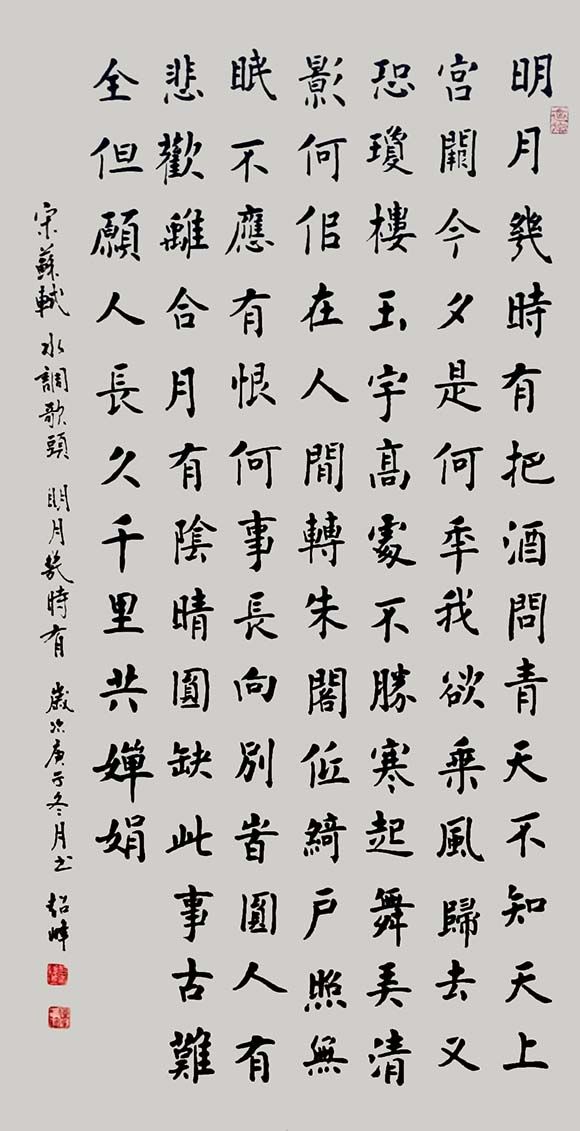 明月幾時有把酒問青天不知天上
宮闕今夕是何年我欲乘風歸去又
恐瓊樓玉宇高處不勝寒起舞弄清
影何佀在人間轉朱閣低綺戶照無
眠不應有恨何事長向別旹圓人有
悲歡離合月有陰晴圓缺此事古難
全但願人長久千里共嬋娟
宋蘇軾水調歌頭 明月幾時有 歲次庚子冬月书 紹峰